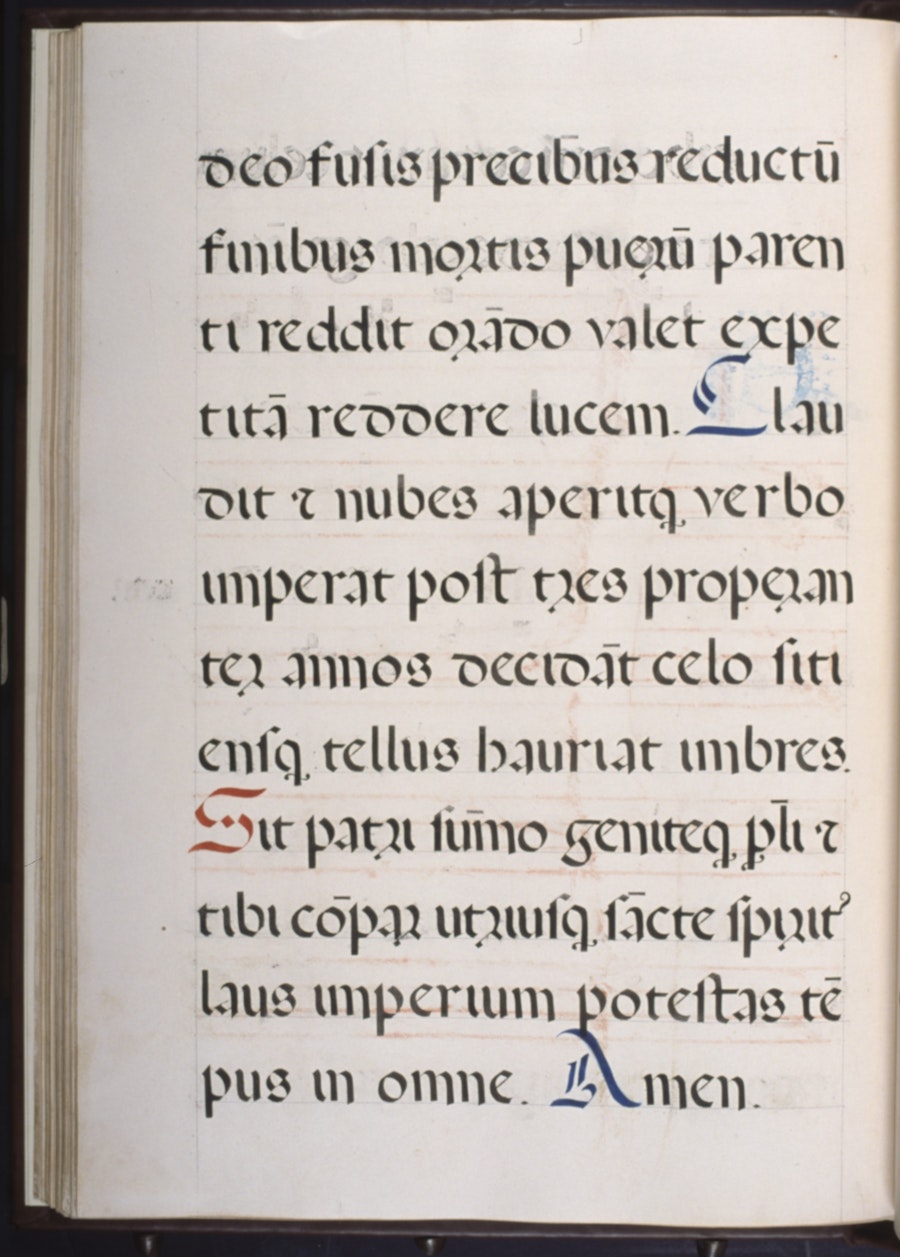 deo fusis precibus reductū
finibus mortis puerū paren
ti reddit orādo valet expe
titā reddere lucem. Clau
dit ⁊ nubes aperitq verbo
imperat post tres properan
ter annos decidāt celo siti
ensq tellus hauriat imbres.
Sit patri sum̄o geniteq ꝓli ⁊
tibi cōpar utriusq sācte spirit᾽
laus imperium potestas tē
pus in omne. Amen.